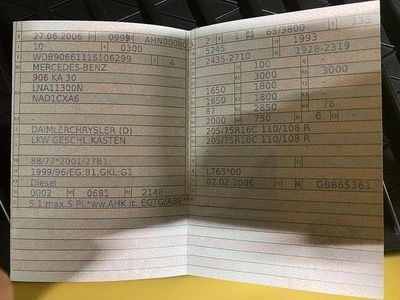 27.06.2006 0999 AHN00060
10 0300
WDB9066111S106299 4
MERCEDES-BENZ
906 KA 30
LNA11300N
NAD1CXA6
DAIMLERCHRYSLER (D)
LKW GESCHL.KASTEN
88/77*2001/27B1
1999/96/EG;B1,GKL.G1
Diesel
0002 0681 2148
S.1 max.S-Pl.*ww.AHK lt. EGTG/ABE***
1 65/3800 135
5245 1993
2435-2710 1928-2319
100
3000 3000
1650 1800
1650 1800
87 2850 76
2000 750 6
205/75R16C 110/108 R
205/75R16C 110/108 R
L765*00
02.02.2006 GB865361